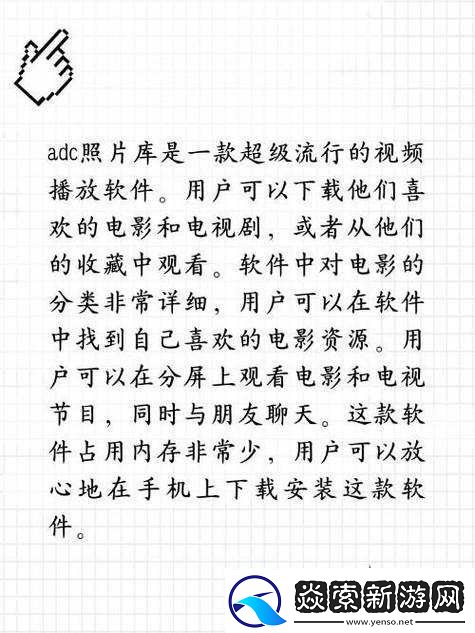 adc照片库是一款超级流行的视频
播放软件。用户可以下载他们喜
欢的电影和电视剧，或者从他们
的收藏中观看。软件中对电影的
分类非常详细，用户可以在软件
中找到自己喜欢的电影资源。用
户可以在分屏上观看电影和电视
节目，同时与朋友聊天。这款软
件占用内存非常少，用户可以放
心地在手机上下载安装这款软
件。
焱索新游网
www.yenso.net